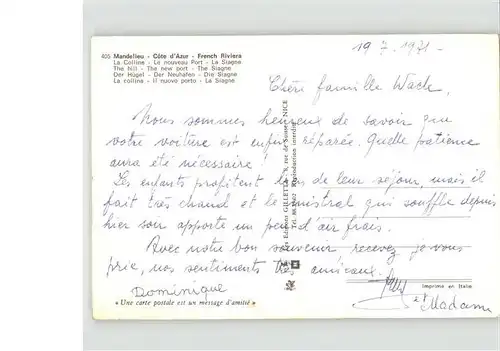 405 Mandelieu - Côte d'Azur - French Riviera
La Colline - Le nouveau Port - La Siagne
The hill - The new port - The Siagne
Der Hügel - Der Neuhafen - Die Siagne
La collina - Il nuovo porto - La Siagne
19.7.1971.
Chère famille Wack,
Nous sommes heureux de savoir que
votre voiture est enfin réparée. Quelle patience
aura été nécessaire!
Les enfants profitent bien de leur séjour, mais il
fait très chaud et le mistral qui souffle depuis
hier soir apporte un peu d'air frais.
Avec notre bon souvenir recevez, je vous
prie, nos sentiments très amicaux.
Dominique
et Madame
Les Editions GILLETTA, rue de Suisse, NICE
Reproduction interdite
Imprimé en Italie
« Une carte postale est un message d'amitié »